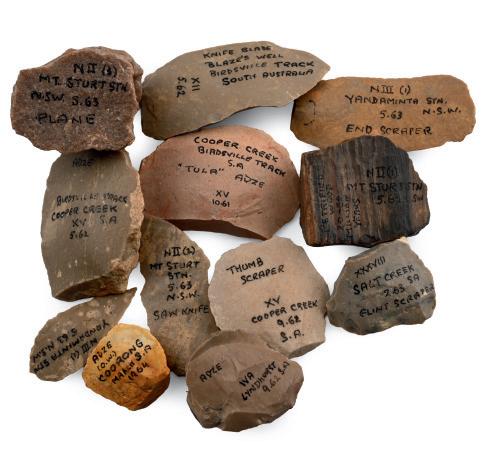 N II (3)
MT. STURT STN.
N.S.W. 5.63
PLANE
KNIFE BLADE
BLAZE'S WELL
BIRDSVILLE TRACK
SOUTH AUSTRALIA
XII
5.62
N III (1)
YANDAMINTA STN.
5.63 N.S.W.
END SCRAPER
ADZE
BIRDSVILLE TRACK
COOPER CREEK
XV S.A
5.62
COOPER CREEK
BIRDSVILLE TRACK
S.A
"TULA" ADZE
XV
10.61
N II (1)
MT STURT STN
5.63
PETRIFIED
WOOD
YEARS
N II (2)
MT STURT
STN.
5.63
N.S.W.
SAW KNIFE
THUMB
SCRAPER
XV
COOPER CREEK
9.62
S.A.
XXXVIII
SALT CREEK
SA
FLINT SCRAPER
YANDAMINTA STN
5.63 NSW
ADZE
(O.W)
COORONG
S.A.
1964
ADZE
WA
LYNDHURST
9.62 S.A